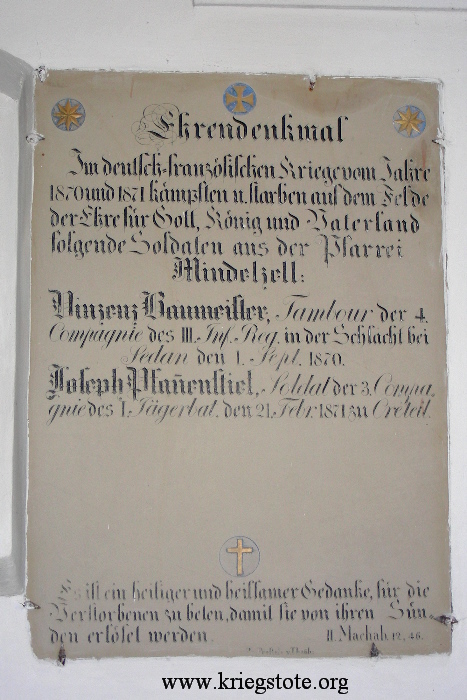 Ehrendenkmal
Im deutsch-französischen Kriege vom Jahre
1870 und 1871 kämpften u. starben auf dem Felde
der Ehre für Gott, König und Vaterland
folgende Soldaten aus der Pfarrei
Mindelzell:
Vinzenz Baumeister, Tambour der 4.
Compagnie des III. Inf. Reg. in der Schlacht bei
Sedan den 1. Sept. 1870.
Joseph Pfan̄enstiel, Soldat der 3. Compa
gnie des I. Jägerbat. den 21. Febr. 1871 zu Créteil.
Es ist ein heiliger und heilsamer Gedanke, für die
Verstorbenen zu beten, damit sie von ihren Sün
den erlöset werden. II. Machab. 12, 46.
www.kriegstote.org